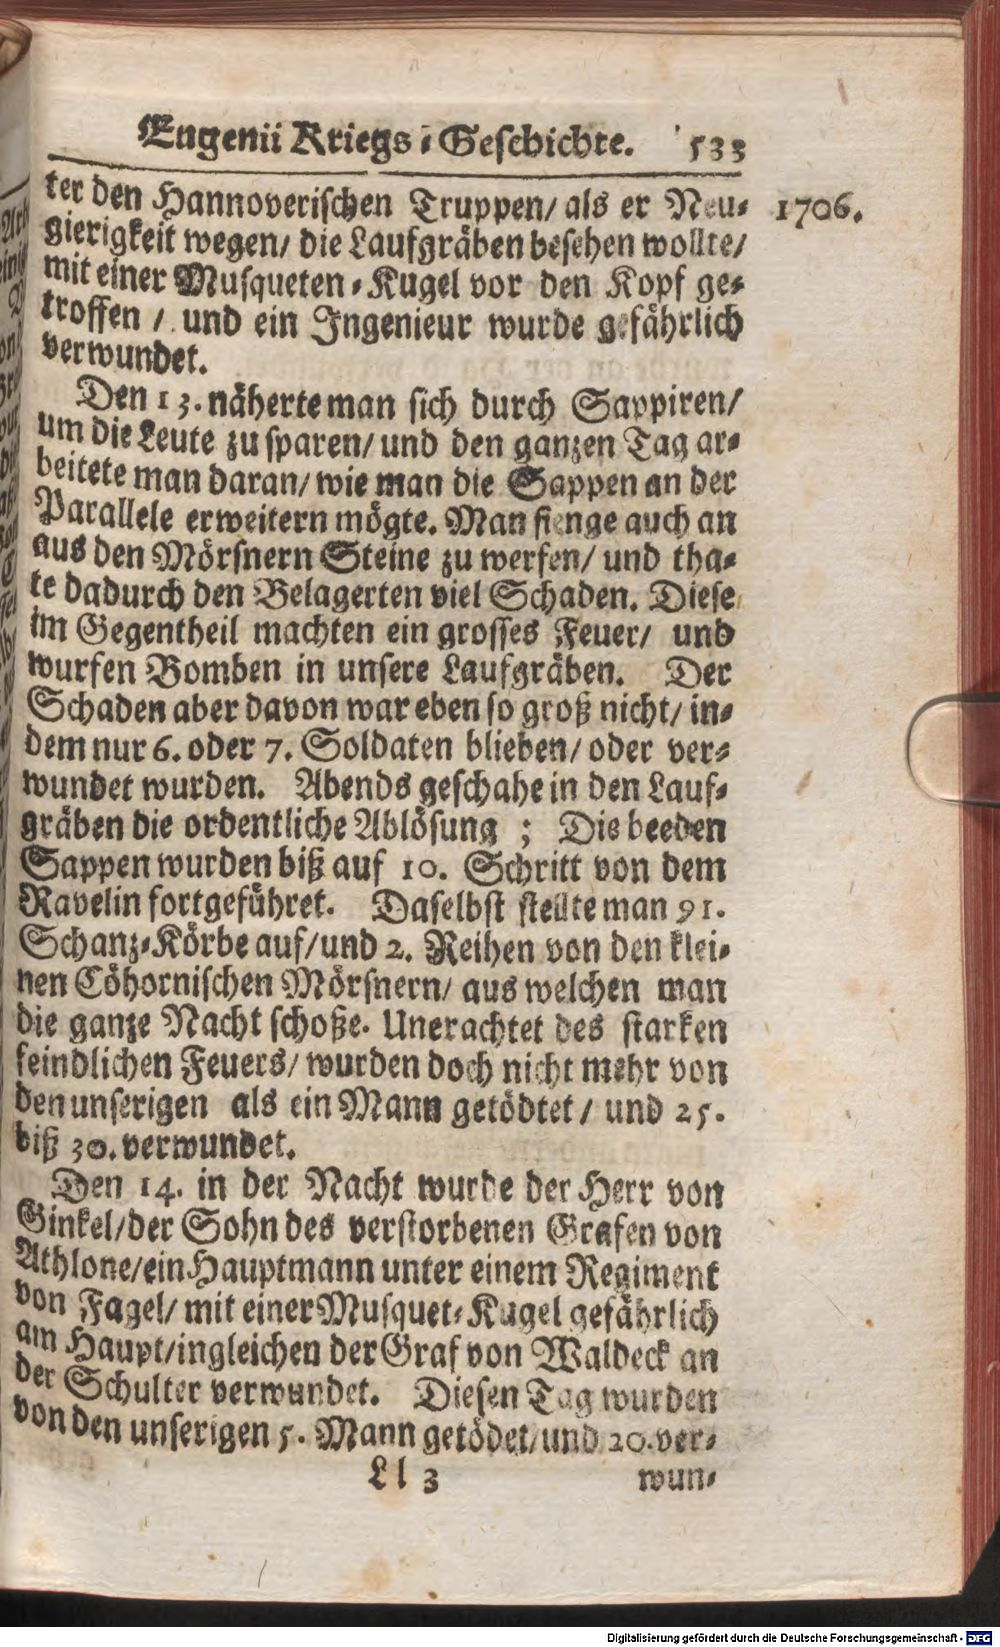 Eugenii Kriegs-Geschichte. 533
ter den Hannoverischen Truppen/ als er Neu- 1706.
gierigkeit wegen/ die Laufgräben besehen wollte/
mit einer Musqueten-Kugel vor den Kopf ge-
troffen / und ein Ingenieur wurde gefährlich
verwundet.
Den 13. näherte man sich durch Sappiren/
um die Leute zu sparen/ und den ganzen Tag ar-
beitete man daran/ wie man die Sappen an der
Parallele erweitern mögte. Man fienge auch an
aus den Mörsnern Steine zu werfen/ und tha-
te dadurch den Belagerten viel Schaden. Diese
im Gegentheil machten ein grosses Feuer/ und
wurfen Bomben in unsere Laufgräben. Der
Schaden aber davon war eben so groß nicht/ in-
dem nur 6. oder 7. Soldaten blieben/ oder ver-
wundet wurden. Abends geschahe in den Lauf-
gräben die ordentliche Ablösung ; Die beeden
Sappen wurden biß auf 10. Schritt von dem
Ravelin fortgeführet. Daselbst stellte man 91.
Schanz-Körbe auf/und 2. Reihen von den klei-
nen Cöhornischen Mörsnern/ aus welchen man
die ganze Nacht schoße. Unerachtet des starken
feindlichen Feuers/ wurden doch nicht mehr von
den unserigen als ein Mann getödtet / und 25.
biß 30. verwundet.
Den 14. in der Nacht wurde der Herr von
Ginkel/der Sohn des verstorbenen Grafen von
Athlone/ein Hauptmann unter einem Regiment
von Fagel/ mit einer Musquet-Kugel gefährlich
am Haupt/ingleichen der Graf von Waldeck an
der Schulter verwundet. Diesen Tag wurden
von den unserigen 5. Mann getödet/und 20. ver-
Ll 3 wun-
Digitalisierung gefördert durch die Deutsche Forschungsgemeinschaft - DFG